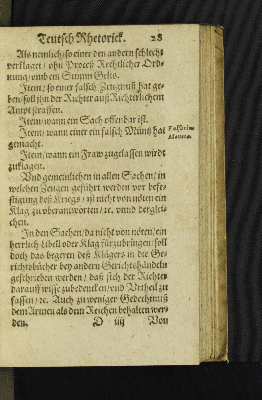 Teutsch Rhetorick. 28
Als nemlich/ so einer den andern schlechts
verklaget/ ohn Proceß Rechtlicher Ord-
nung/ umb ein Summ Gelts.
Item/ so einer falsch Zeugnuß hat ge-
ben/ soll jhn der Richter auß Richterlichem
Ampt straffen.
Item/ wann ein Sach offenbar ist.
Item/ wann einer ein falsch Müntz hat
gemacht.
Item/ wann ein Fraw zugelassen wirdt
zuklagen.
Vnd gemeinlichen in allen Sachen/ in
welchen Zeugen geführt werden vor befe-
stigung deß Kriegs/ ist nicht von nöten ein
Klag zu verantworten/ ꝛc. vnnd derglei-
chen.
In den Sachen/ da nicht von nöten/ ein
herrlich Libell oder Klag fürzubringen/ soll
doch das begeren deß Klägers in die Ge-
richtsbücher bey andern Gerichtshändeln
geschrieben werden/ daß sich der Richter
darauff wisse zubedencken/ vnd Vrtheil zu
fassen/ ꝛc. Auch zu weniger Gedechtnuß
dem Armen als dem Reichen behalten wer-
den. D iiij Von